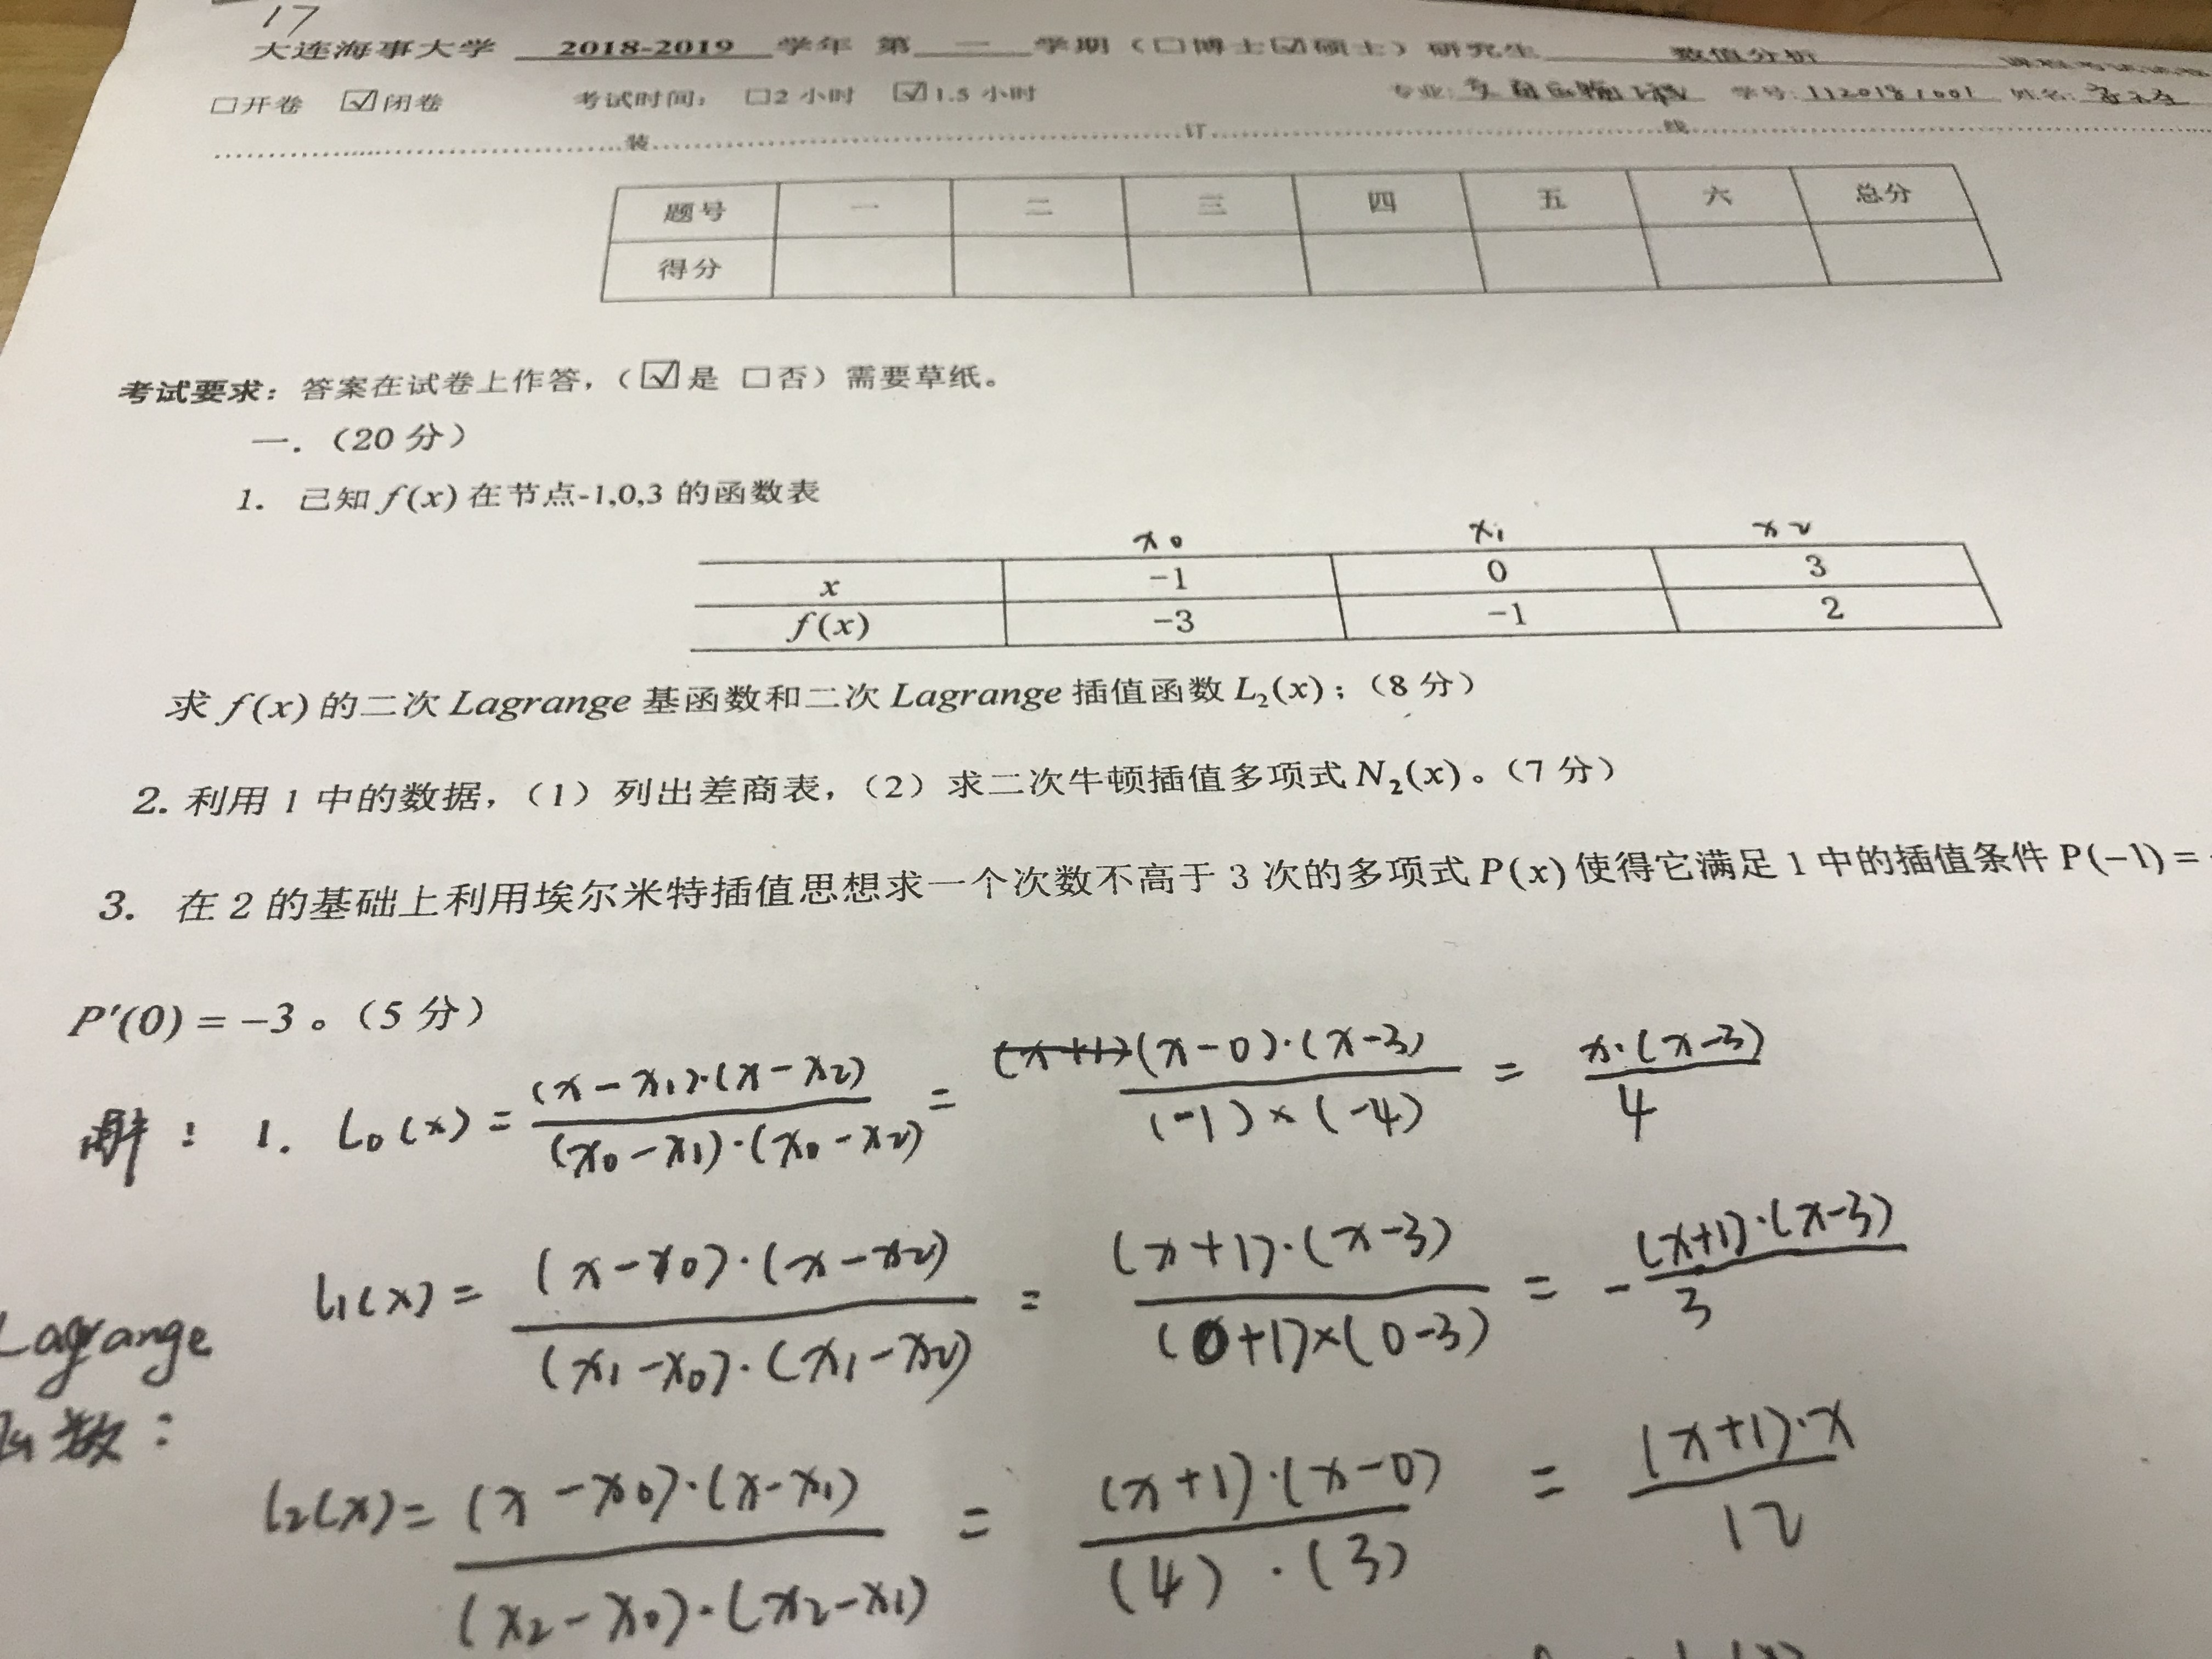 17
大连海事大学 2018-2019 学年 第 一 学期（□博士☑硕士）研究生 数值分析
□开卷 ☑闭卷 考试时间: □2 小时 ☑1.5 小时 专业: 学号: 姓名:
装 订 线
题号 一 二 三 四 五 六 总分
得分
考试要求: 答案在试卷上作答,（☑是 □否）需要草纸。
一.（20 分）
1. 已知 f(x) 在节点-1,0,3 的函数表
x₀ x₁ x₂
x -1 0 3
f(x) -3 -1 2
求 f(x) 的二次 Lagrange 基函数和二次 Lagrange 插值函数 L₂(x)；（8 分）
2. 利用 1 中的数据,（1）列出差商表,（2）求二次牛顿插值多项式 N₂(x)。（7 分）
3. 在 2 的基础上利用埃尔米特插值思想求一个次数不高于 3 次的多项式 P(x) 使得它满足 1 中的插值条件 P(-1) =
P′(0) = -3。（5 分）
解: 1. l₀(x) = (x-x₁)·(x-x₂) / (x₀-x₁)·(x₀-x₂) = (x-0)·(x-3) / (-1)×(-4) = x·(x-3) / 4
l₁(x) = (x-x₀)·(x-x₂) / (x₁-x₀)·(x₁-x₂) = (x+1)·(x-3) / (0+1)×(0-3) = -(x+1)·(x-3) / 3
Lagrange
函数:
l₂(x) = (x-x₀)·(x-x₁) / (x₂-x₀)·(x₂-x₁) = (x+1)·(x-0) / (4)·(3) = (x+1)·x / 12